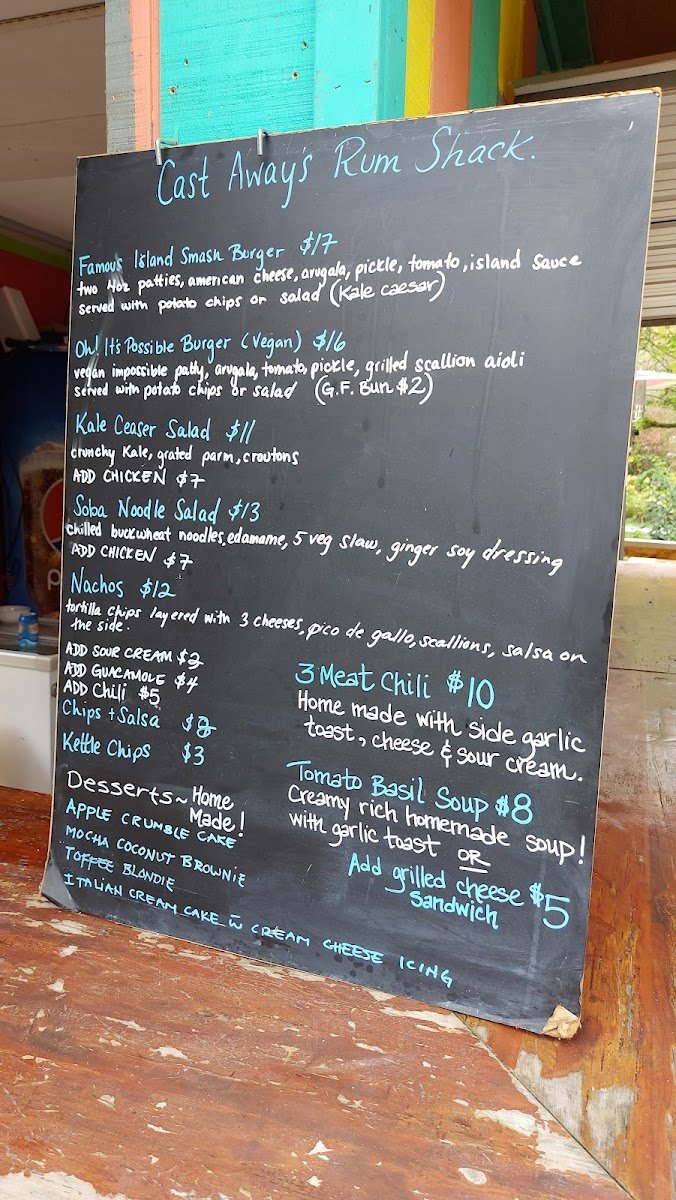 Cast Away's Rum Shack.
Famous Island Smash Burger $17
two 4oz patties, american cheese, arugala, pickle, tomato, island sauce
served with potato chips or salad (Kale caesar)
Oh! It's Possible Burger (Vegan) $16
vegan impossible patty, arugala, tomato, pickle, grilled scallion aioli
served with potato chips or salad (G.F. Bun $2)
Kale Ceaser Salad $11
crunchy Kale, grated parm, croutons
ADD CHICKEN $7
Soba Noodle Salad $13
chilled buckwheat noodles, edamame, 5 veg slaw, ginger soy dressing
ADD CHICKEN $7
Nachos $12
tortilla chips layered with 3 cheeses, pico de gallo, scallions, salsa on
the side.
ADD SOUR CREAM $2
ADD GUACAMOLE $4
ADD Chili $5
Chips + Salsa
Kettle Chips $3
3 Meat Chili $10
Home made with side garlic
toast, cheese & sour cream.
Tomato Basil Soup $8
Creamy rich homemade soup!
with garlic toast OR
Add grilled cheese $5
sandwich
Desserts ~ Home
Made!
APPLE CRUMBLE CAKE
MOCHA COCONUT BROWNIE
TOFFEE BLONDIE
ITALIAN CREAM CAKE w CREAM CHEESE ICING